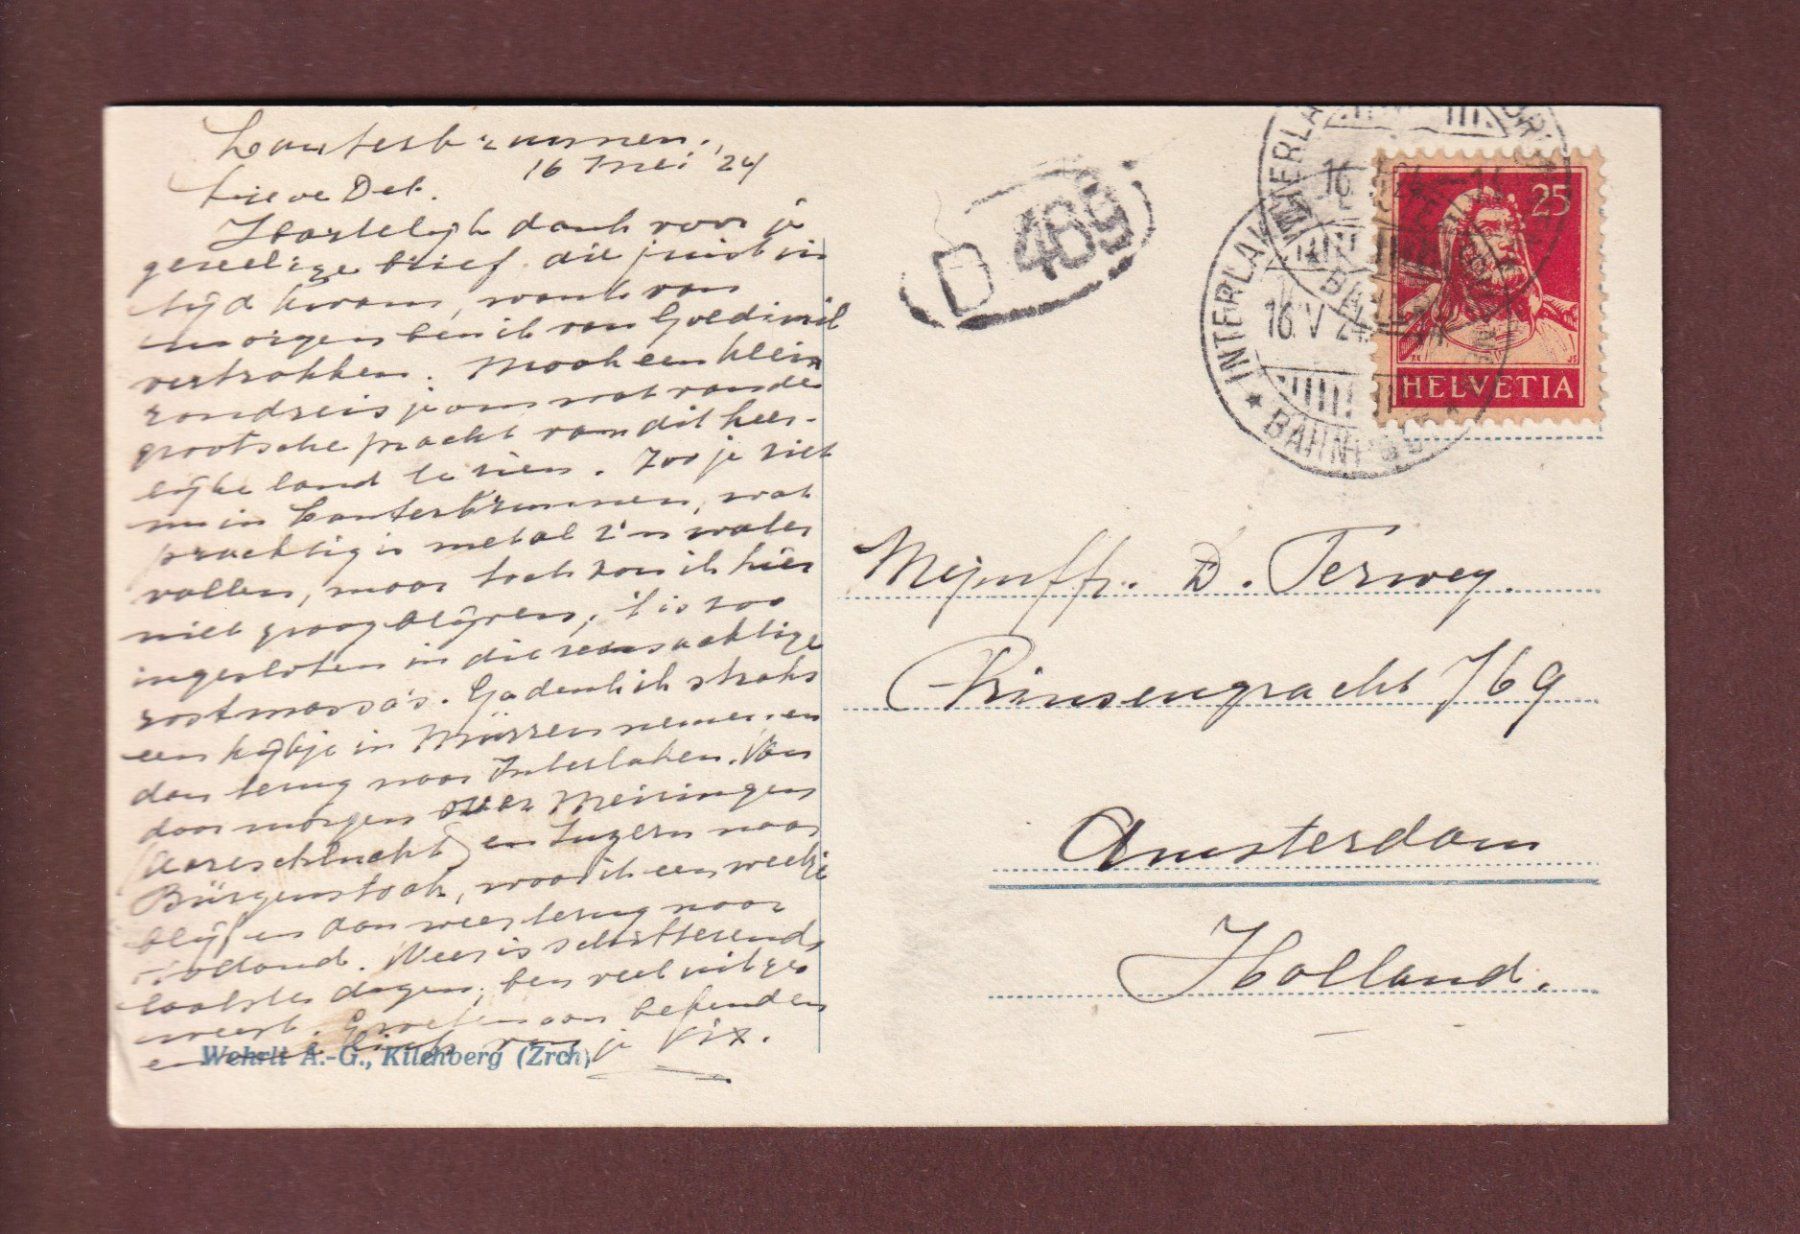 Lauterbrunnen,
16 Mei '24
Lieve Del.
Hartelijk dank voor je
gezellige brief die juist in
tijd kwam, want van
morgen ben ik van Goldiwil
vertrokken. Maak een klein
rondreisje om wat van de
grootsche pracht van dit heer-
lijke land te zien. Zoo je ziet
nu in Lauterbrunnen, wat
prachtig is met al z'n water
vallen, maar toch zou ik hier
niet graag blijven, 't is zoo
ingesloten in die reusachtige
rostmassa's. Ga denk ik straks
een kijkje in Mürren nemen en
dan terug naar Interlaken. Van
daar morgen over Meiringen
(Aareschlucht) en Luzern naar
Bürgenstock, waar ik een weekje
blijf en dan weer terug naar
Holland. Weer is schitterend
laatste dagen, ben veel uitge
weest. Groeten aan bekenden
en van je Fix.
Wehrli A.-G., Kilchberg (Zrch)
D 469
INTERLAKEN
16 V 24
BAHNHOF
25
HELVETIA
Mejuffr. D. Terwey.
Prinsengracht 769
Amsterdam
Holland.